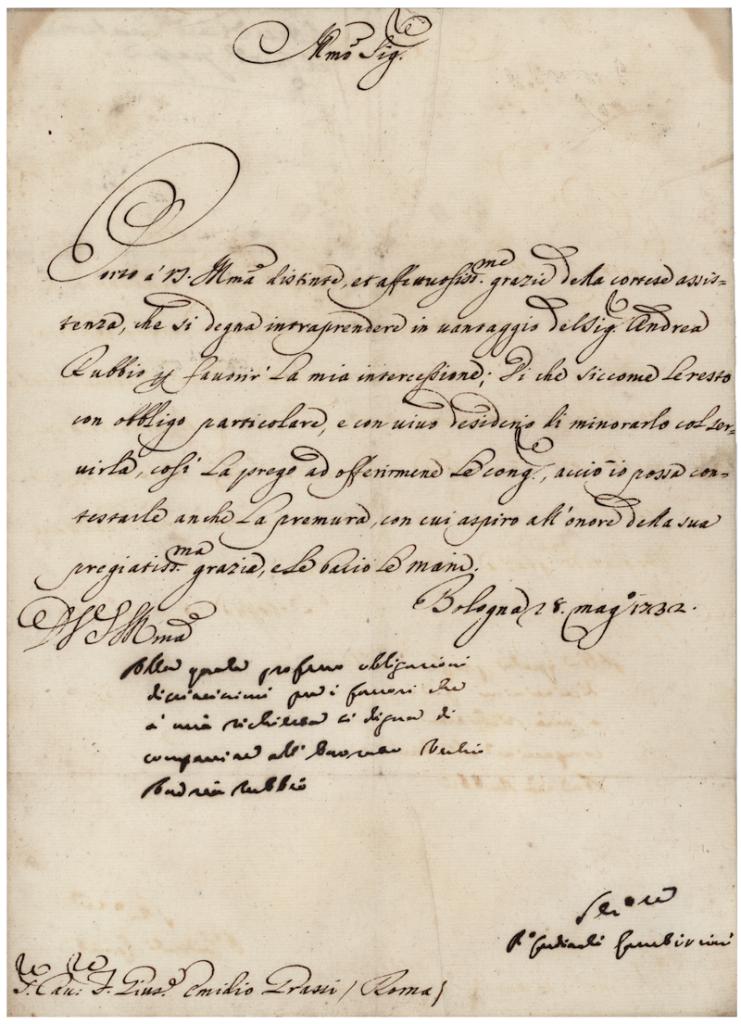 Illmo Sig.re
Porto à V.S. Illma distinte, et affettuosiss.me grazie della cortese assis-
tenza, che si degna intraprendere in vantaggio del Sig.re Andrea
Rubbio favorir' la mia intercessione; Di che siccome le resto
con obbligo particolare, e con vivo desiderio di minorarlo col ser-
virla, così la prego ad offerirmene le cong.re, acciò io possa con-
testarle anche la premura, con cui aspiro all'onore della sua
pregiatiss.ma grazia, e le bacio le mani.
Bologna 28. mag.o 1732.
D V S Illma
Alla quale professo obligazioni
per i favori che
à mia richiesta si digna di
all'
Andrea Rubbio
Ser.re
S. Cav.re Gius.e Emilio Grassi / Roma /